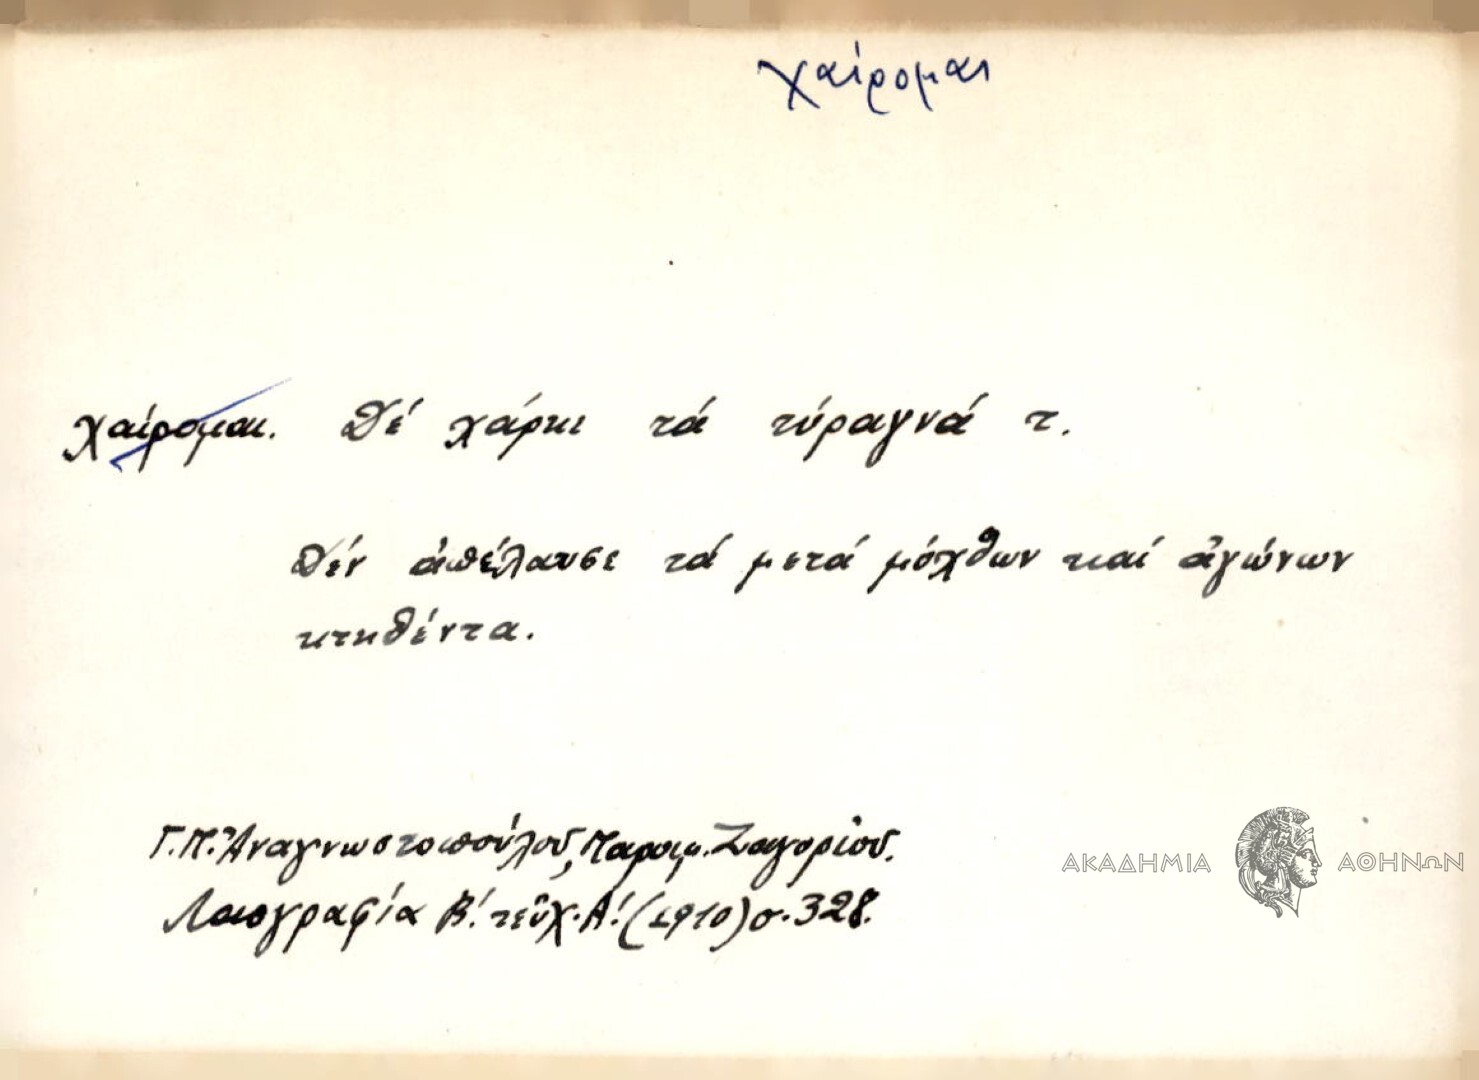 χαίρομαι
χαίρομαι. Δέ χάρκι τά τύραγνά τ.
Δέν ἀπέλαυσε τά μετά μόχθων καί ἀγώνων
κτηθέντα.
Γ.Π. Ἀναγνωστοπούλου, Παροιμ. Ζαγορίου.
Λαογραφία Β! τεῦχ. Α! (1910) σ. 328.
ΑΚΑΔΗΜΙΑ ΑΘΗΝΩΝ